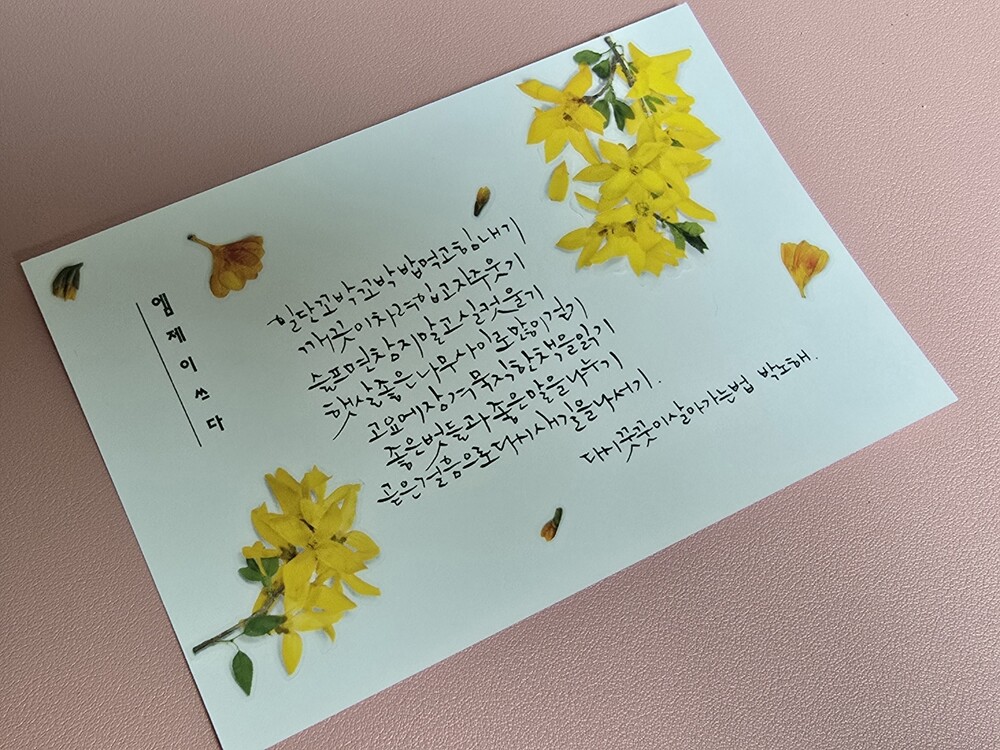 엠제이쓰다
일단 꼬박꼬박 밥 먹고 힘내기
깨끗이 차려 입고 자주 웃기
슬프면 참지 말고 실컷 울기
햇살 좋은 나무 사이로 많이 걷기
고요에 잠겨 묵직한 책을 읽기
좋은 벗들과 좋은 말을 나누기
곧은 걸음으로 다시 새 길을 나서기.
다시 꿋꿋이 살아가는 법 박노해.